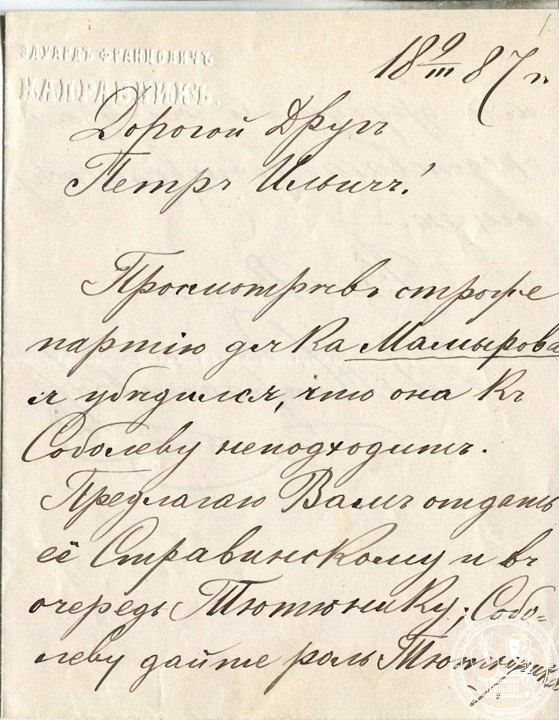 ЭДУАРДЪ ФРАНЦОВИЧЪ
НАПРАВНИКЪ.
18 9/III 87 г.
Дорогой Другъ
Петръ Ильичъ!
Просмотрѣвъ строже
партію дьяка Мамырова
я убѣдился, что она къ
Соболеву неподходитъ.
Предлагаю Вамъ отдать
её Стравинскому и въ
очередь Тютюнику; Собо-
леву дайте роль